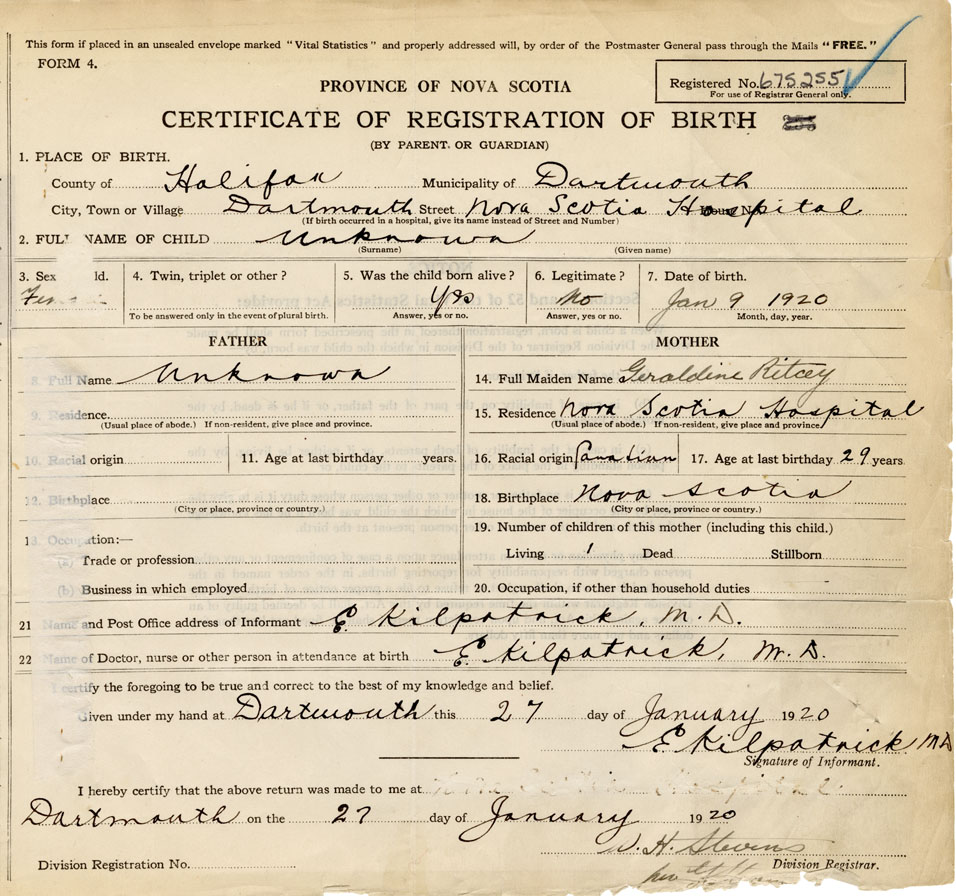 This form if placed in an unsealed envelope marked "Vital Statistics" and properly addressed will, by order of the Postmaster General pass through the Mails "FREE."
FORM 4.
Registered No. 675255
For use of Registrar General only.
PROVINCE OF NOVA SCOTIA
CERTIFICATE OF REGISTRATION OF BIRTH
(BY PARENT OR GUARDIAN)
1. PLACE OF BIRTH.
County of Halifax Municipality of Dartmouth
City, Town or Village Dartmouth Street Nova Scotia Hospital House No.
(If birth occurred in a hospital, give its name instead of Street and Number)
2. FULL NAME OF CHILD Unknown
(Surname) (Given name)
3. Sex ld. 4. Twin, triplet or other? 5. Was the child born alive? 6. Legitimate? 7. Date of birth.
Yes No Jan 9 1920
To be answered only in the event of plural birth. Answer, yes or no. Answer, yes or no. Month, day, year.
FATHER MOTHER
8. Full Name Unknown 14. Full Maiden Name Geraldine Ritcey
9. Residence 15. Residence Nova Scotia Hospital
(Usual place of abode.) If non-resident, give place and province. (Usual place of abode.) If non-resident, give place and province.
10. Racial origin 11. Age at last birthday years. 16. Racial origin Canadian 17. Age at last birthday 29 years.
12. Birthplace 18. Birthplace Nova Scotia
(City or place, province or country.) (City or place, province or country.)
13. Occupation:— 19. Number of children of this mother (including this child.)
(a) Trade or profession Living 1 Dead Stillborn
(b) Business in which employed 20. Occupation, if other than household duties
21 Name and Post Office address of Informant E. Kilpatrick, M.D.
22 Name of Doctor, nurse or other person in attendance at birth E. Kilpatrick, M.D.
I certify the foregoing to be true and correct to the best of my knowledge and belief.
Given under my hand at Dartmouth this 27 day of January 1920
E Kilpatrick MD
Signature of Informant.
I hereby certify that the above return was made to me at Nova Scotia Hospital
Dartmouth on the 27 day of January 1920
H. Stevens
Division Registration No. Division Registrar.